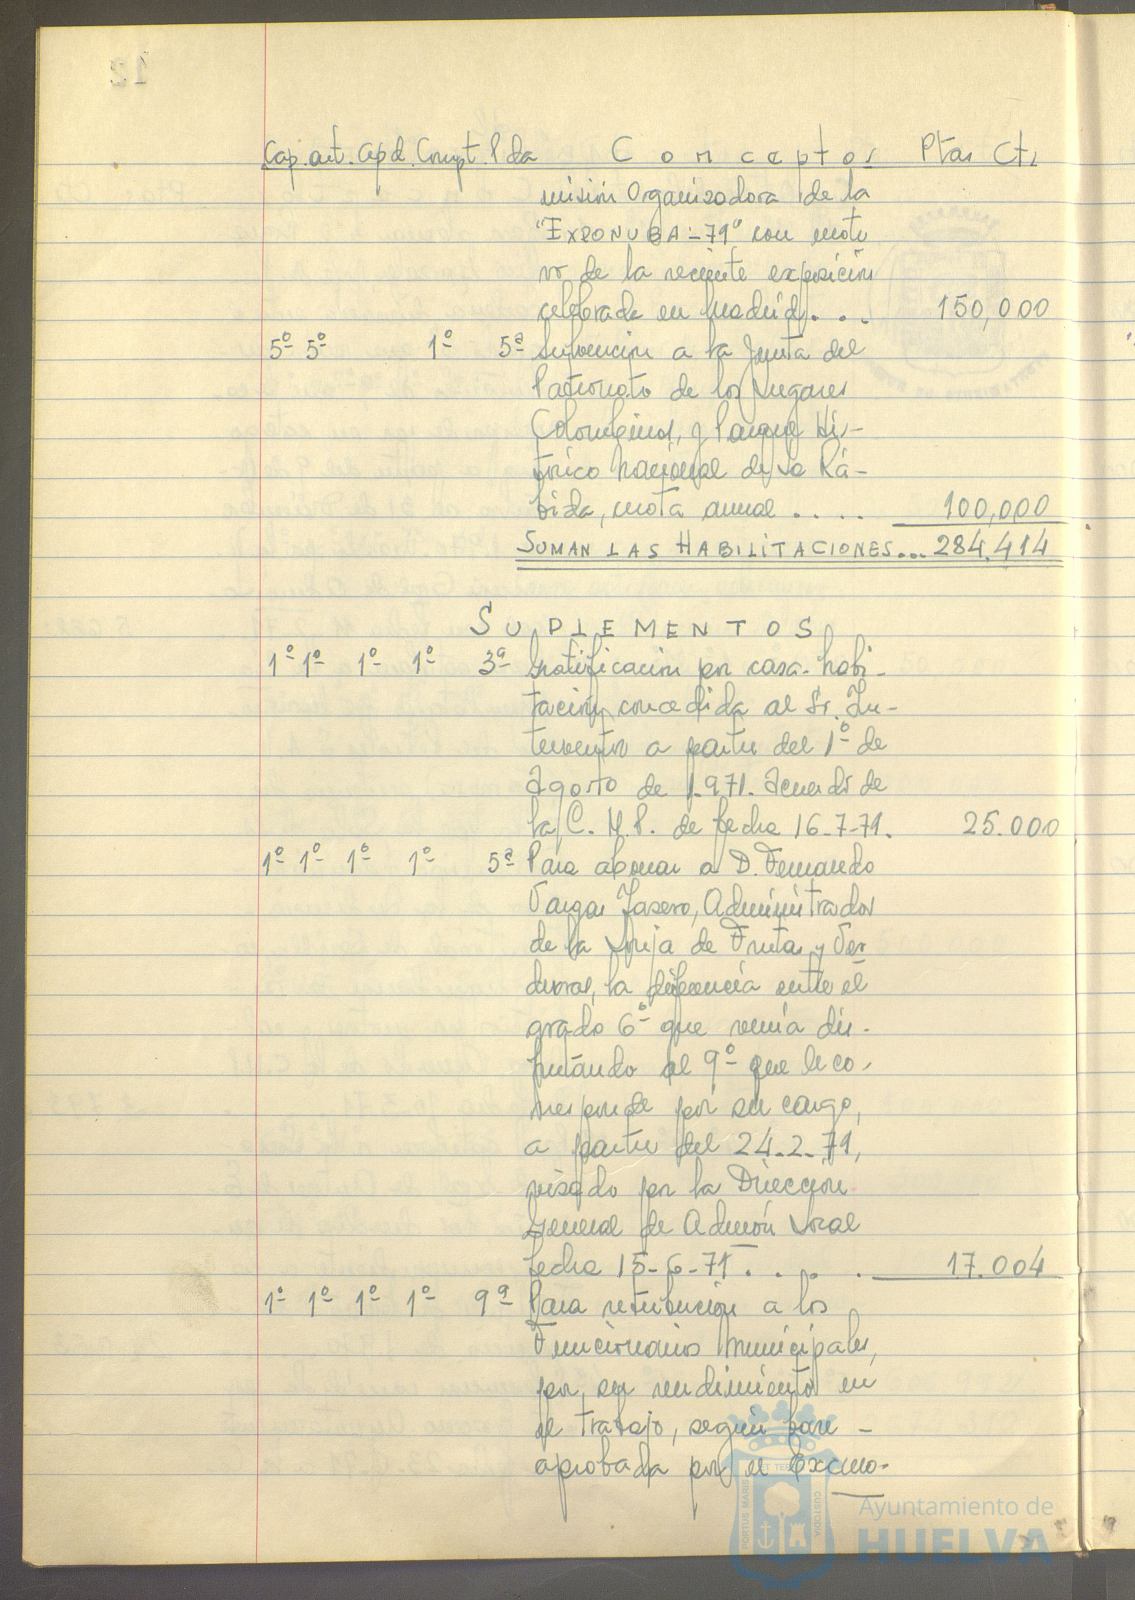 Cap. art. Apd. Concpt. Pda Conceptos Ptas Cts
misión Organizadora de la
"EXPONUBA-71" con moti
vo de la reciente exposición
celebrada en Madrid. . . 150,000
5º 5º 1º 5ª Subvención a la Junta del
Patronato de los Lugares
Colombinos, y Parque His-
tórico Nacional de La Rá-
bida, cuota anual .... 100,000
SUMAN LAS HABILITACIONES... 284.414
SUPLEMENTOS
1º 1º 1º 1º 3ª Gratificación por casa-habi-
tación, concedida al Sr. In-
terventor a partir del 1º de
Agosto de 1.971. Acuerdo de
la C. M. P. de fecha 16-7-71. 25.000
1º 1º 1º 1º 5ª Para abonar a D. Fernando
Vargas Administrador
de la Lonja de Frutas y Ver
duras, la diferencia entre el
grado 6º que venía dis-
frutando al 9º que le co-
rresponde por su cargo,
a partir del 24-2-71,
visado por la Dirección
General de Admón Local
fecha 15-6-71. . . . 17.004
1º 1º 1º 1º 9ª Para retribución a los
Funcionarios Municipales,
por su rendimiento en
el trabajo, según base -
aprobada por el Excmo-
PORTUS MARIS ET TERRÆ CUSTODIA
Ayuntamiento de
HUELVA